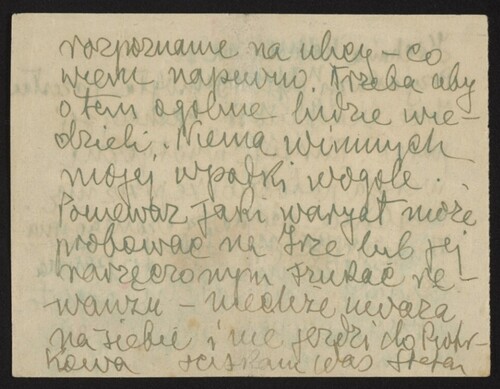 rozpoznanie na ulicy – co
wiem napewno. Trzeba aby
o tem ogólnie ludzie wie-
dzieli. Niema winnych
mojej wpadki wogóle.
Ponieważ jaki waryat może
próbować na Irze lub jej
narzeczonym szukać re-
wanżu – niechże uważa
na siebie i nie jeździ do Piotr-
kowa ściskam was Stefan